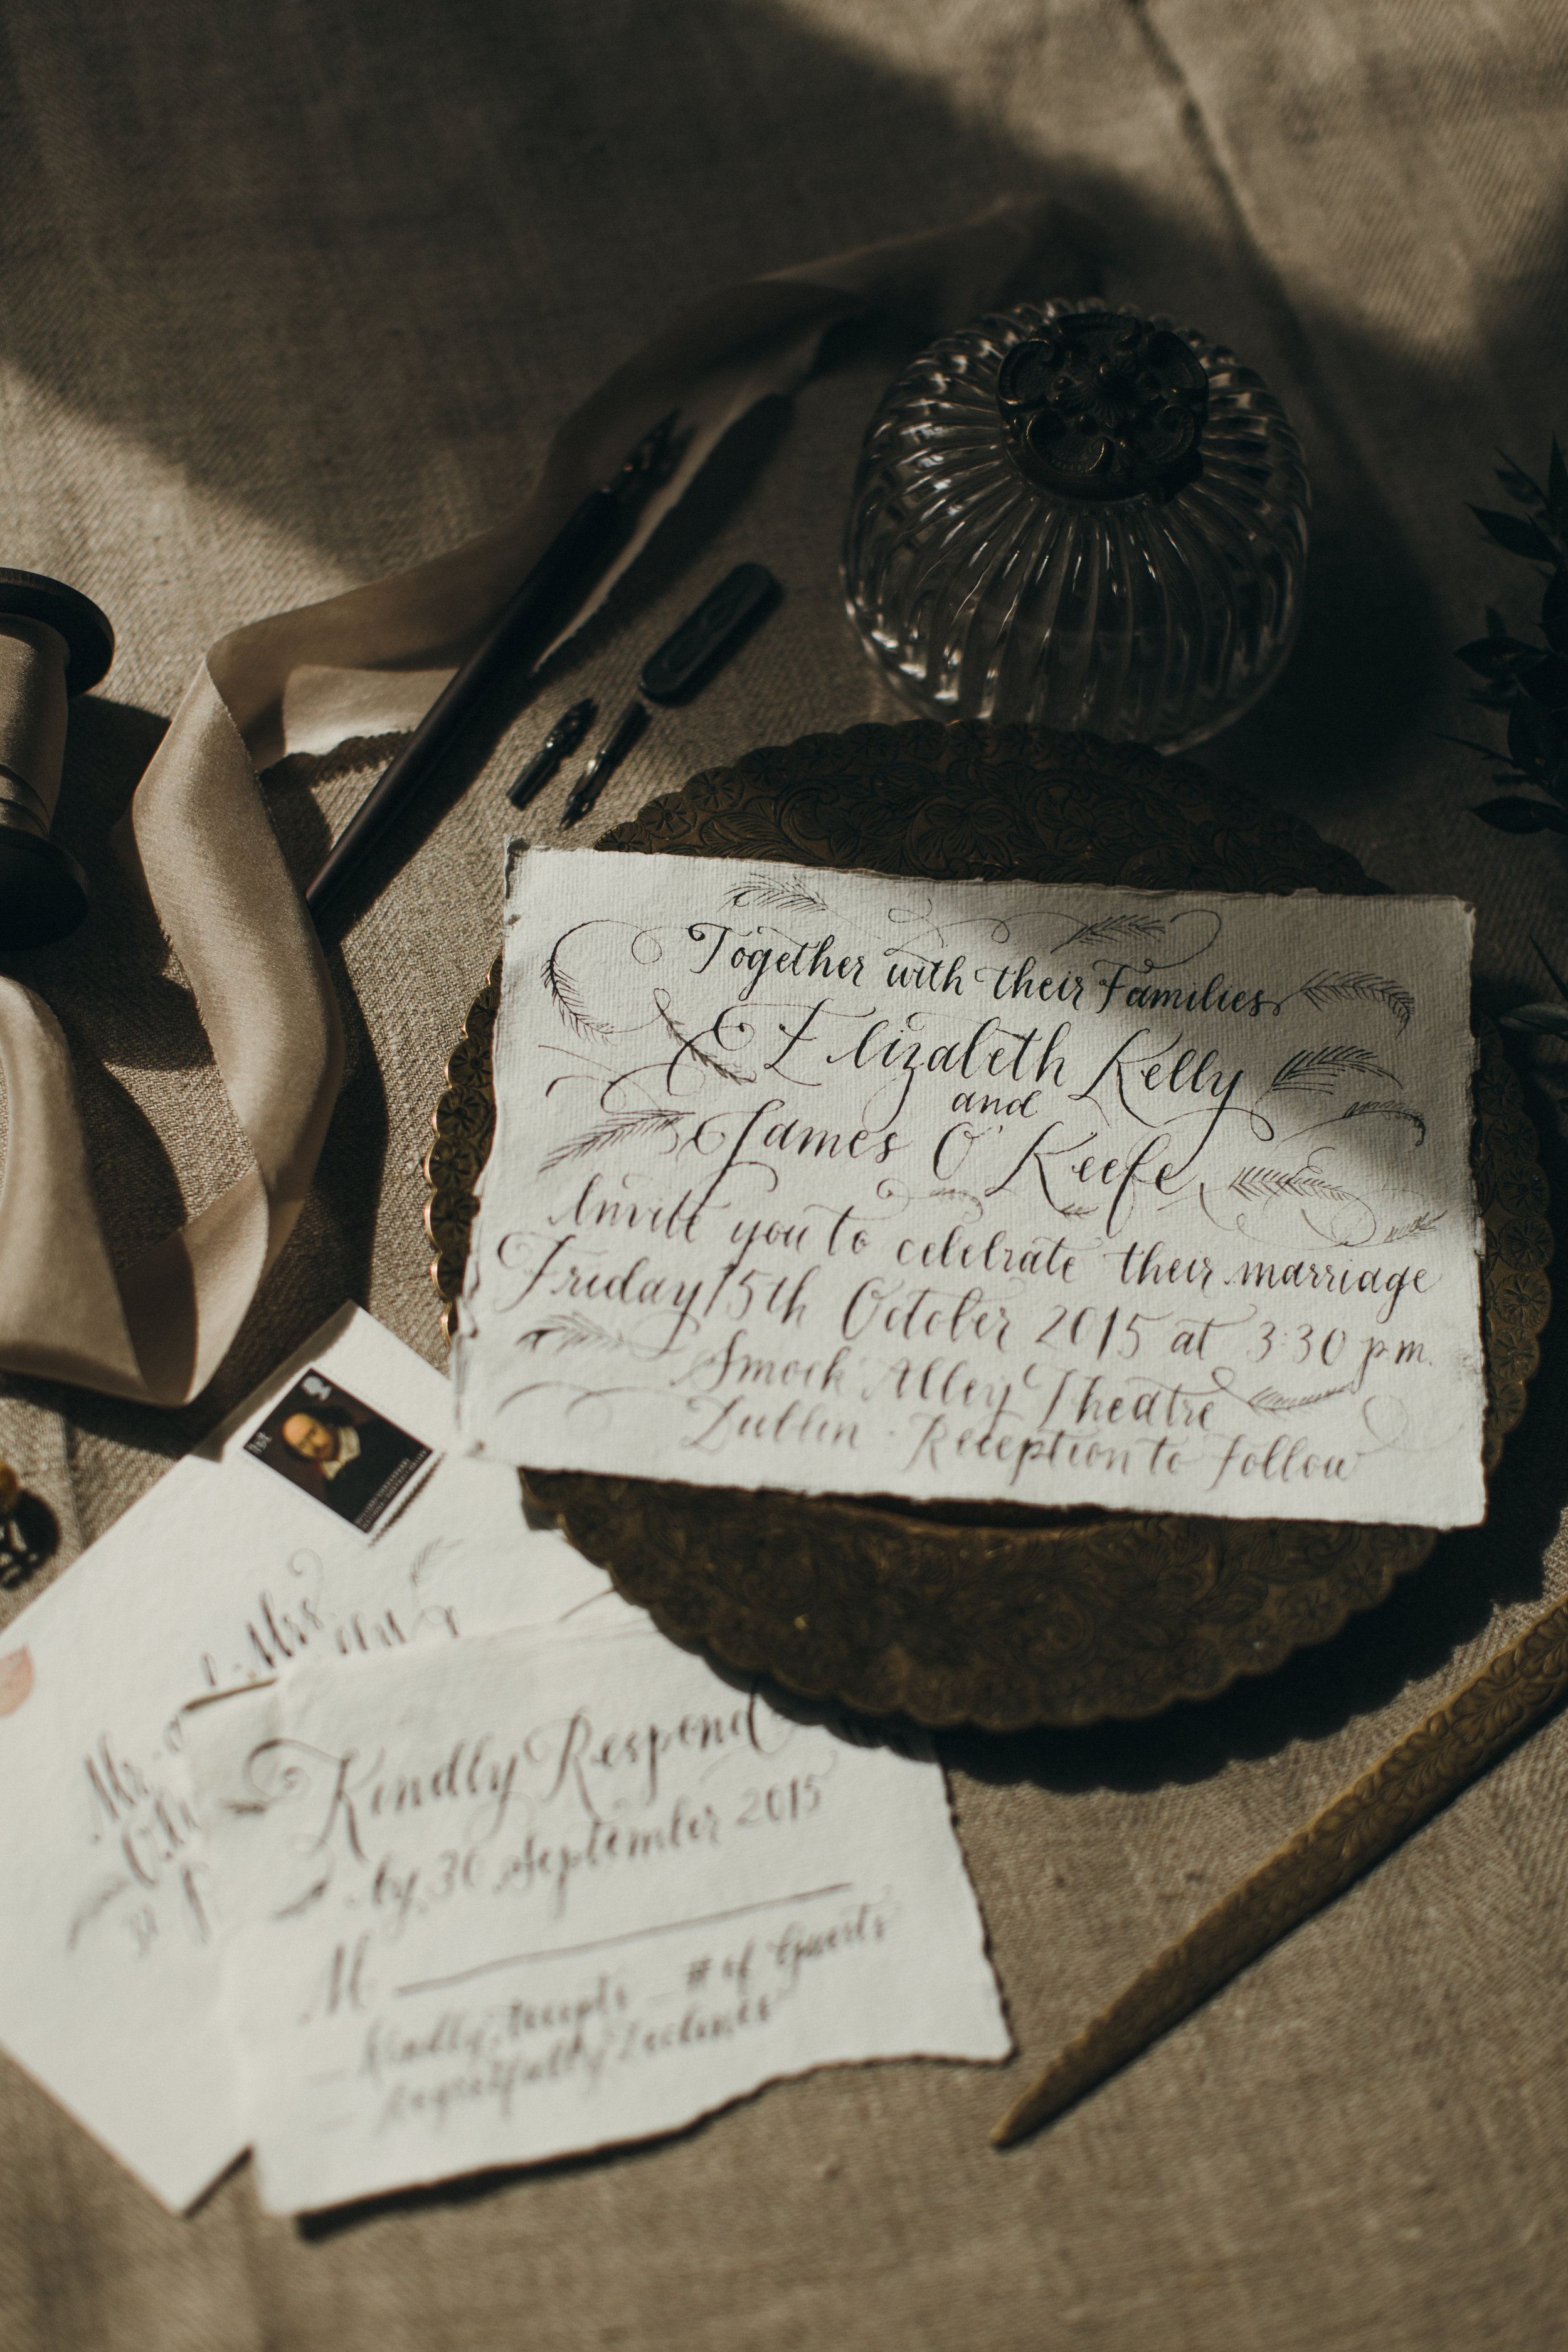 Together with their Families
Elizabeth Kelly
and
James O'Keefe
Invite you to celebrate their marriage
Friday 15th October 2015 at 3:30 p.m.
Smock Alley Theatre
Dublin · Reception to Follow
Mrs
Mr.
Kindly Respond
by 30 September 2015
M
Kindly Accepts # of Guests
Regretfully Declines